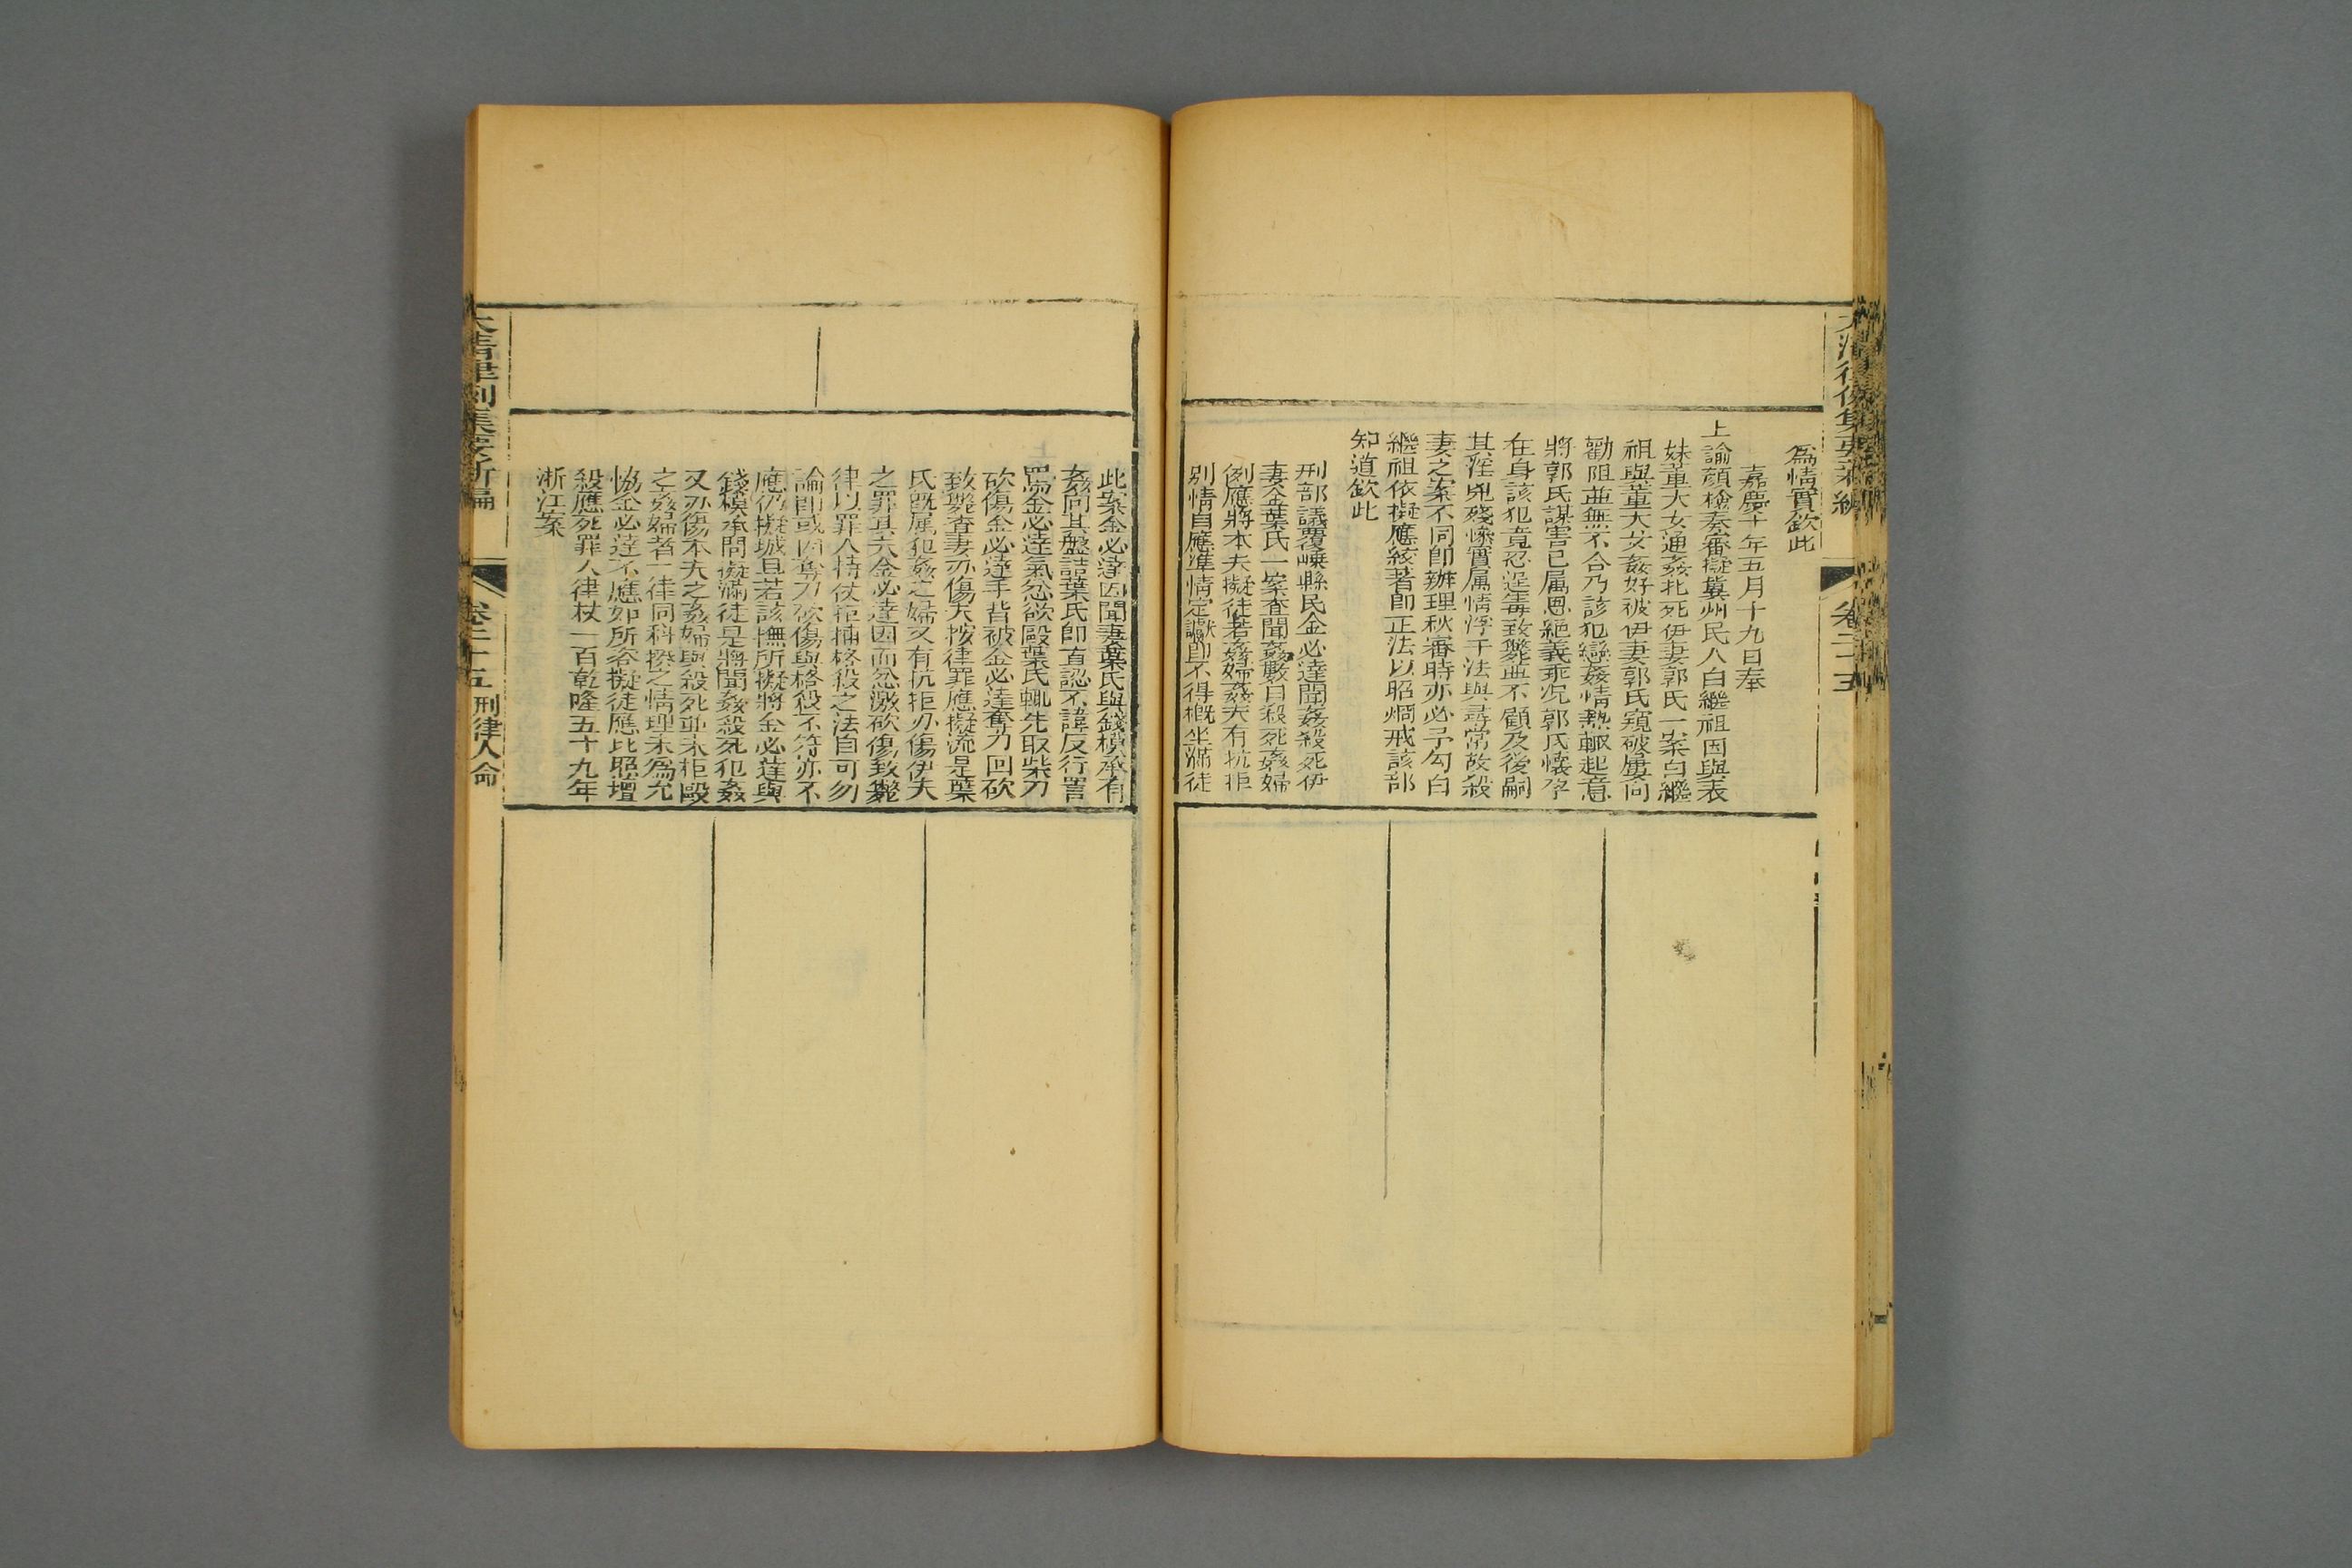 為情實欽此
嘉慶十年五月十九日奉
上諭顏檢奏審擬冀州民人白繼祖因與表
妹董大女通姦扎死伊妻郭氏一案白繼
祖與董大女姦好被伊妻郭氏窺破屢向
勸阻並無不合乃該犯戀姦情熱輒起意
將郭氏謀害已属恩絕義乖况郭氏懷孕
在身該犯竟忍逞毒致斃並不顧及後嗣
其淫兇殘慘實属情浮于法與尋常故殺
妻之案不同卽辦理秋審時亦必予勾白
繼祖依擬應絞著卽正法以昭烱戒該部
知道欽此
刑部議覆嵊縣民金必達聞姦殺死伊
妻金葉氏一案查聞姦數日殺死姦婦
例應將本夫擬徒若姦婦姦夫有抗拒
别情自應準情定讞卽不得概坐滿徒
此案金必達因聞妻葉氏與錢模承有
姦向其盤詰葉氏卽直認不諱反行詈
罵金必達氣忿欲毆葉氏輒先取柴刀
砍傷金必達手背被金必達奪刀回砍
致斃查妻刃傷夫按律罪應擬流是葉
氏旣属犯姦之婦又有抗拒刃傷伊夫
之罪其夫金必達因而忿激砍傷致斃
律以罪人持仗拒捕格殺之法自可勿
論卽或因奪刀砍傷與格殺不符亦不
應仍擬城旦若該撫所擬將金必達與
錢模承同擬滿徒是將聞姦殺死犯姦
又刃傷本夫之姦婦與殺死並未拒毆
之姦婦者一律同科揆之情理未為允
恊金必達不應如所咨擬徒應比照擅
殺應死罪人律杖一百乾隆五十九年
浙江案
大清律例集要新編
卷二十五
刑律人命